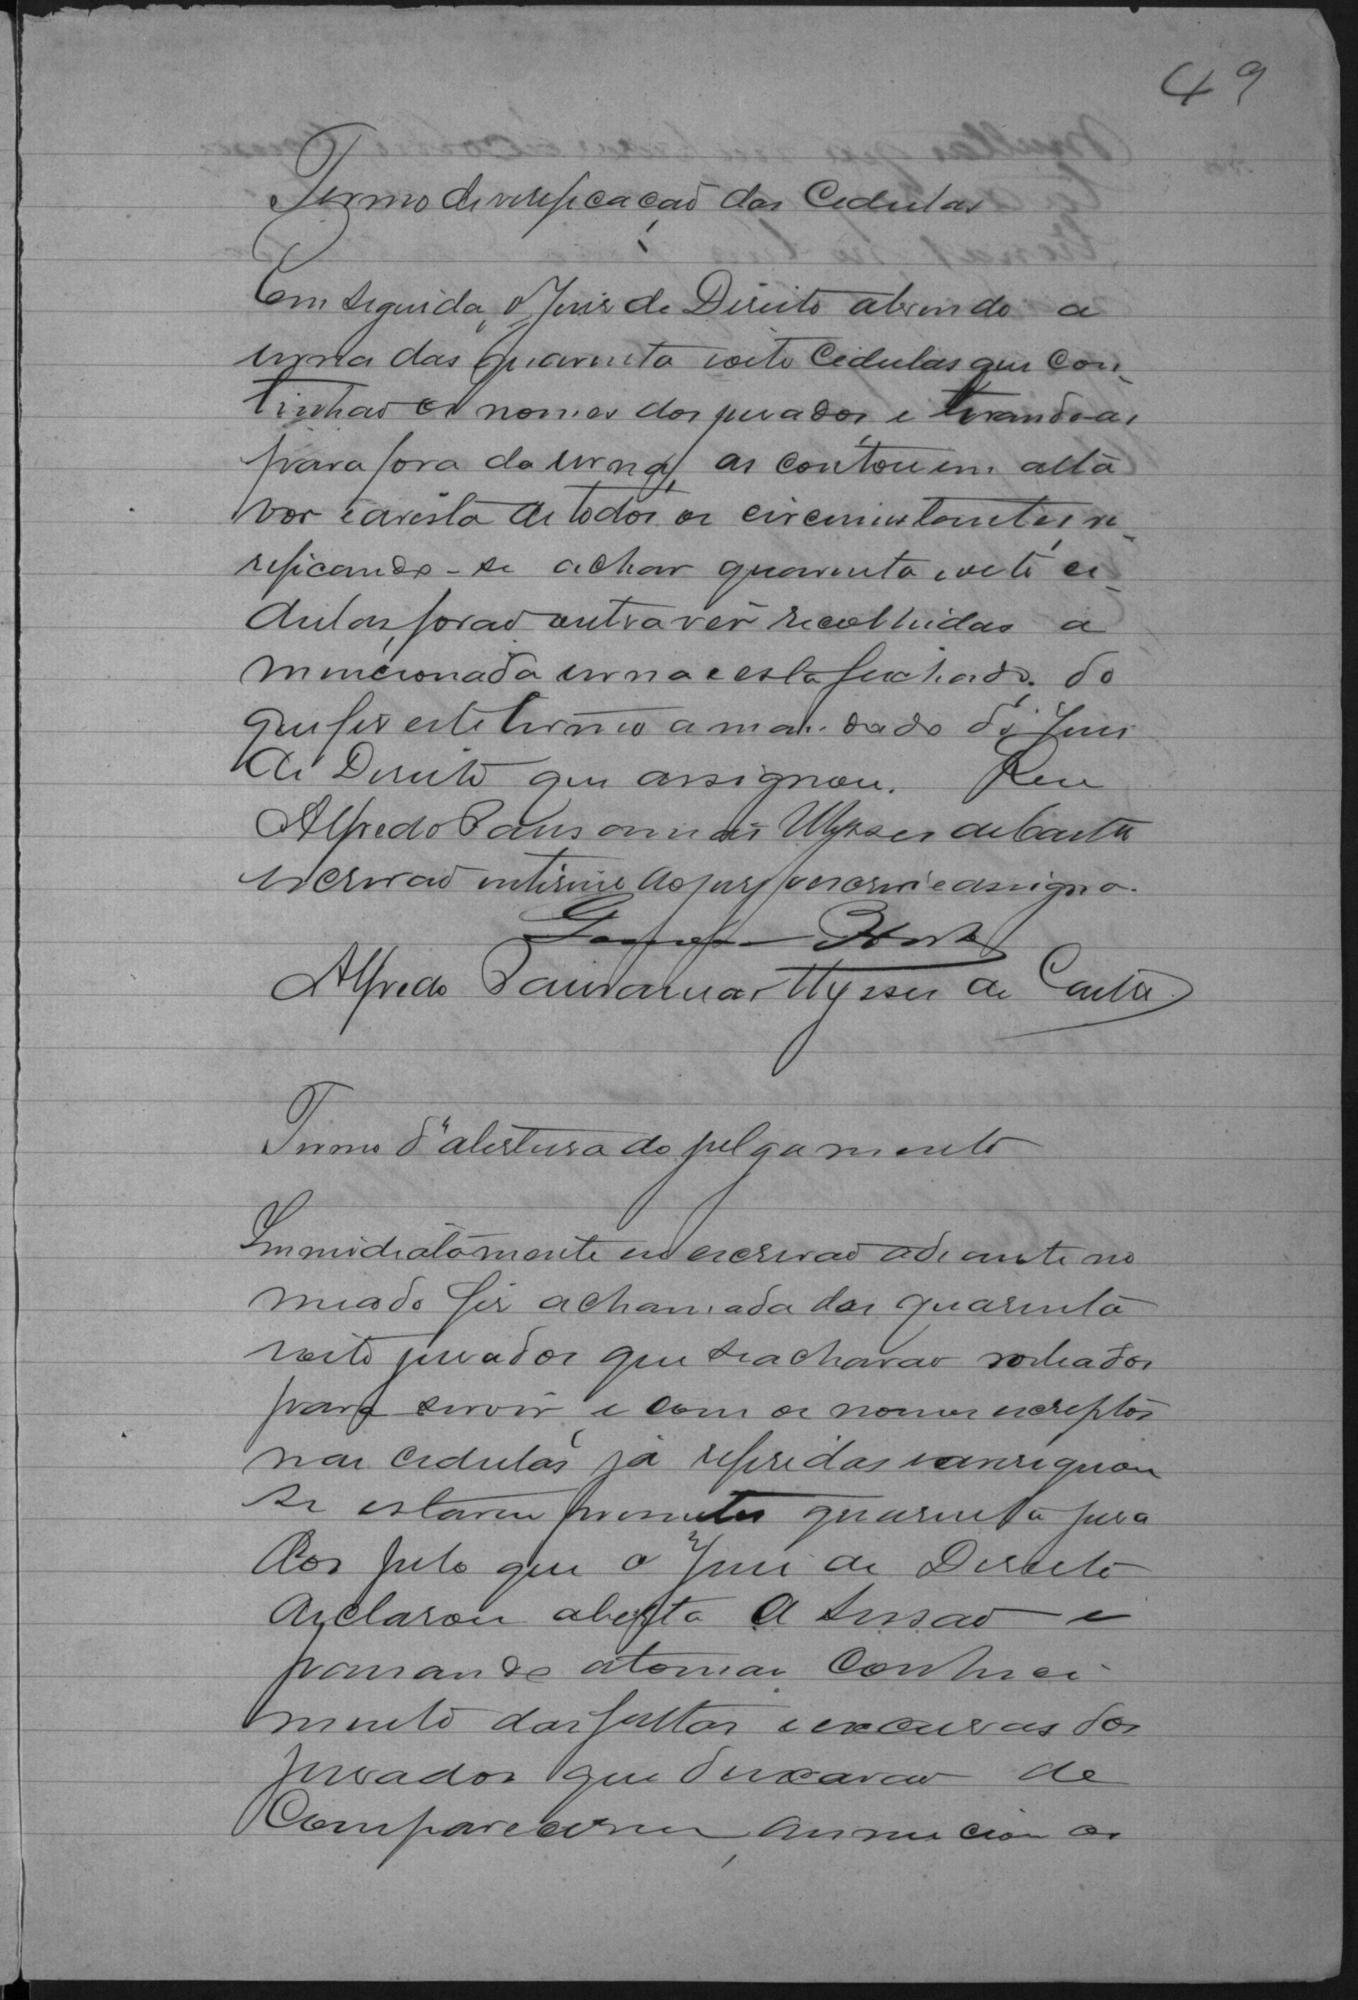 49
Termo de verificação das Cedulas
Em seguida, o Juiz de Direito abrindo a
urna das quarenta e oito Cedulas que con-
tinhão os nomes dos jurados e tirando-as
para fora da urna, as contou em alta
voz e a vista de todos os circumstantes, ve-
rificando-se achar quarenta e oito ce-
dulas, forão outra vez recolhidas a
mencionada urna e esta fechada, do
que fiz este termo a mandado do Juiz
de Direito que assignou. Eu
Alfredo Ulysses de Castro
escrivão interino do jury o escrevi e assigno.
Alfredo Ulysses de Castro
Termo d'abertura do julgamento
Immediatamente eu escrivão adiante no
meado fiz a chamada dos quarenta
e oito jurados que se achavão sorteados
para servir e com os nomes escriptos
nas cedulas já referidas e consignou
se estarem presentes quarenta jura
dos pelo que o Juiz de Direito
declarou aberta a sessão e
passando a tomar conheci-
mento das faltas e excusas dos
jurados que deixarão de
comparecerem, annunciou os